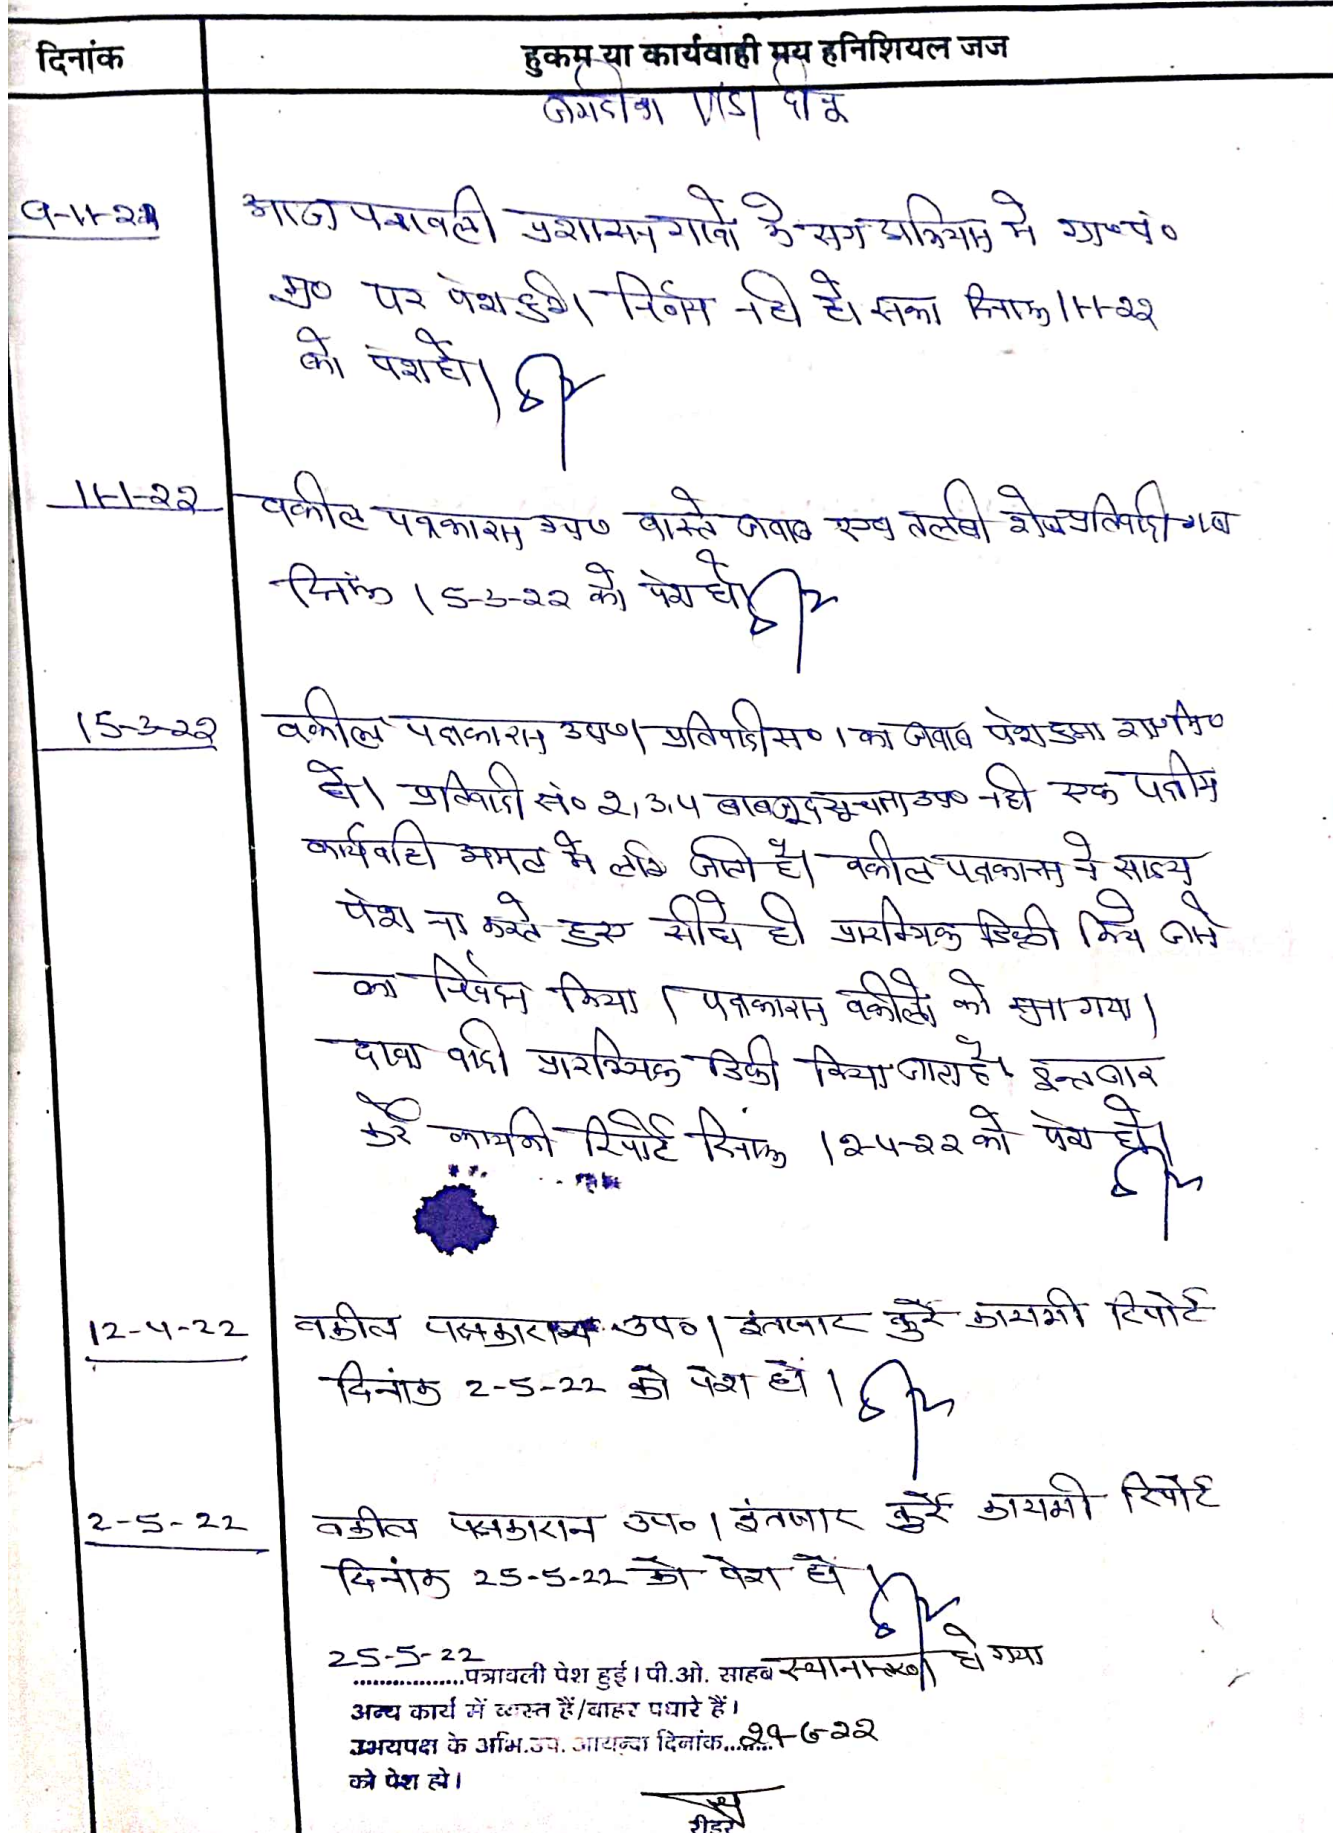 दिनांक हुकम या कार्यवाही मय हनिशियल जज
जगदीश V/S दीनू
9-11-21 आज पत्रावली प्रशासन गावो के संग अभियान मे ग्रा०पं०
मु० पर पेश हुई। निर्णय नही है। दिनांक 11-1-22
को पेश हो।
11-1-22 वकील पक्षकारान उप० वास्ते जवाब एवं तलबी शेष प्रतिवादीगण
दिनांक 15-3-22 को पेश हो
15-3-22 वकील पक्षकारान उप०। प्रतिवादी स० 1 का जवाब पेश हुआ शा०मि०
हो। प्रतिवादी सं० 2,3,4 बावजूद सूचना उप० नही एक पक्षीय
कार्यवाही अमल मे लाई जाती है। वकील पक्षकारान ने साक्ष्य
पेश ना करते हुए सीधे ही प्रारम्भिक डिक्री किये जाने
का निवेदन किया। पक्षकारान वकीलो को सुना गया।
दावा वादी प्रारम्भिक डिक्री किया जाता है। इन्तजार
कुर्रे कायमी रिपोर्ट दिनांक 12-4-22 को पेश हो।
12-4-22 वकील पक्षकारान उप०। इंतजार कुर्रे कायमी रिपोर्ट
दिनांक 2-5-22 को पेश हो।
2-5-22 वकील पक्षकारान उप०। इंतजार कुर्रे कायमी रिपोर्ट
दिनांक 25-5-22 को पेश हो
25-5-22 पत्रावली पेश हुई। पी.ओ. साहब स्थानान्तरण हो गया
अन्य कार्य में व्यस्त हैं/बाहर पधारे हैं।
उभयपक्ष के अभि.उप. आयन्दा दिनांक........29-6-22
को पेश हो।
रीडर